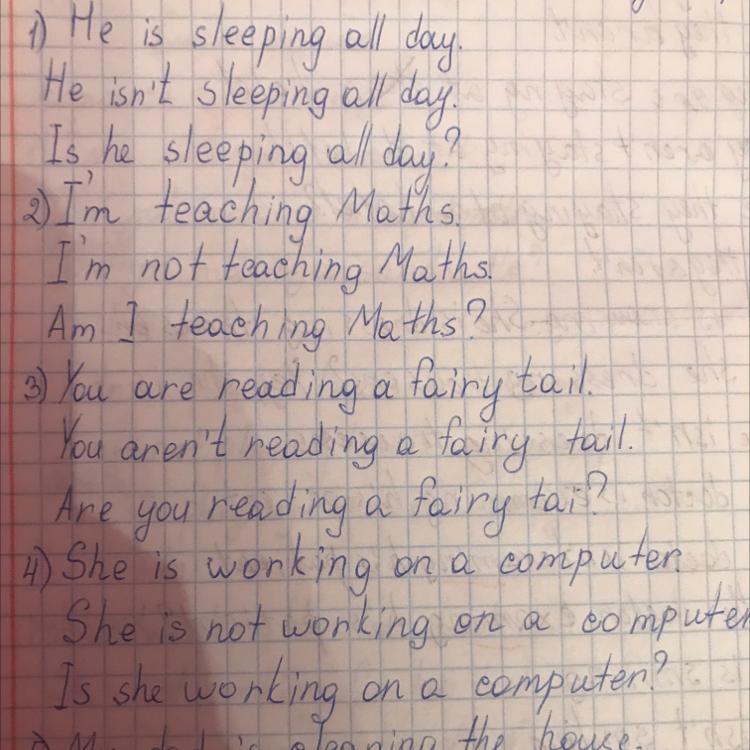 1) He is sleeping all day.
He isn't sleeping all day.
Is he sleeping all day?
2) I'm teaching Maths.
I'm not teaching Maths.
Am I teaching Maths?
3) You are reading a fairy tail.
You aren't reading a fairy tail.
Are you reading a fairy tai?
4) She is working on a computer.
She is not working on a computer
Is she working on a computer?
is cleaning the house.